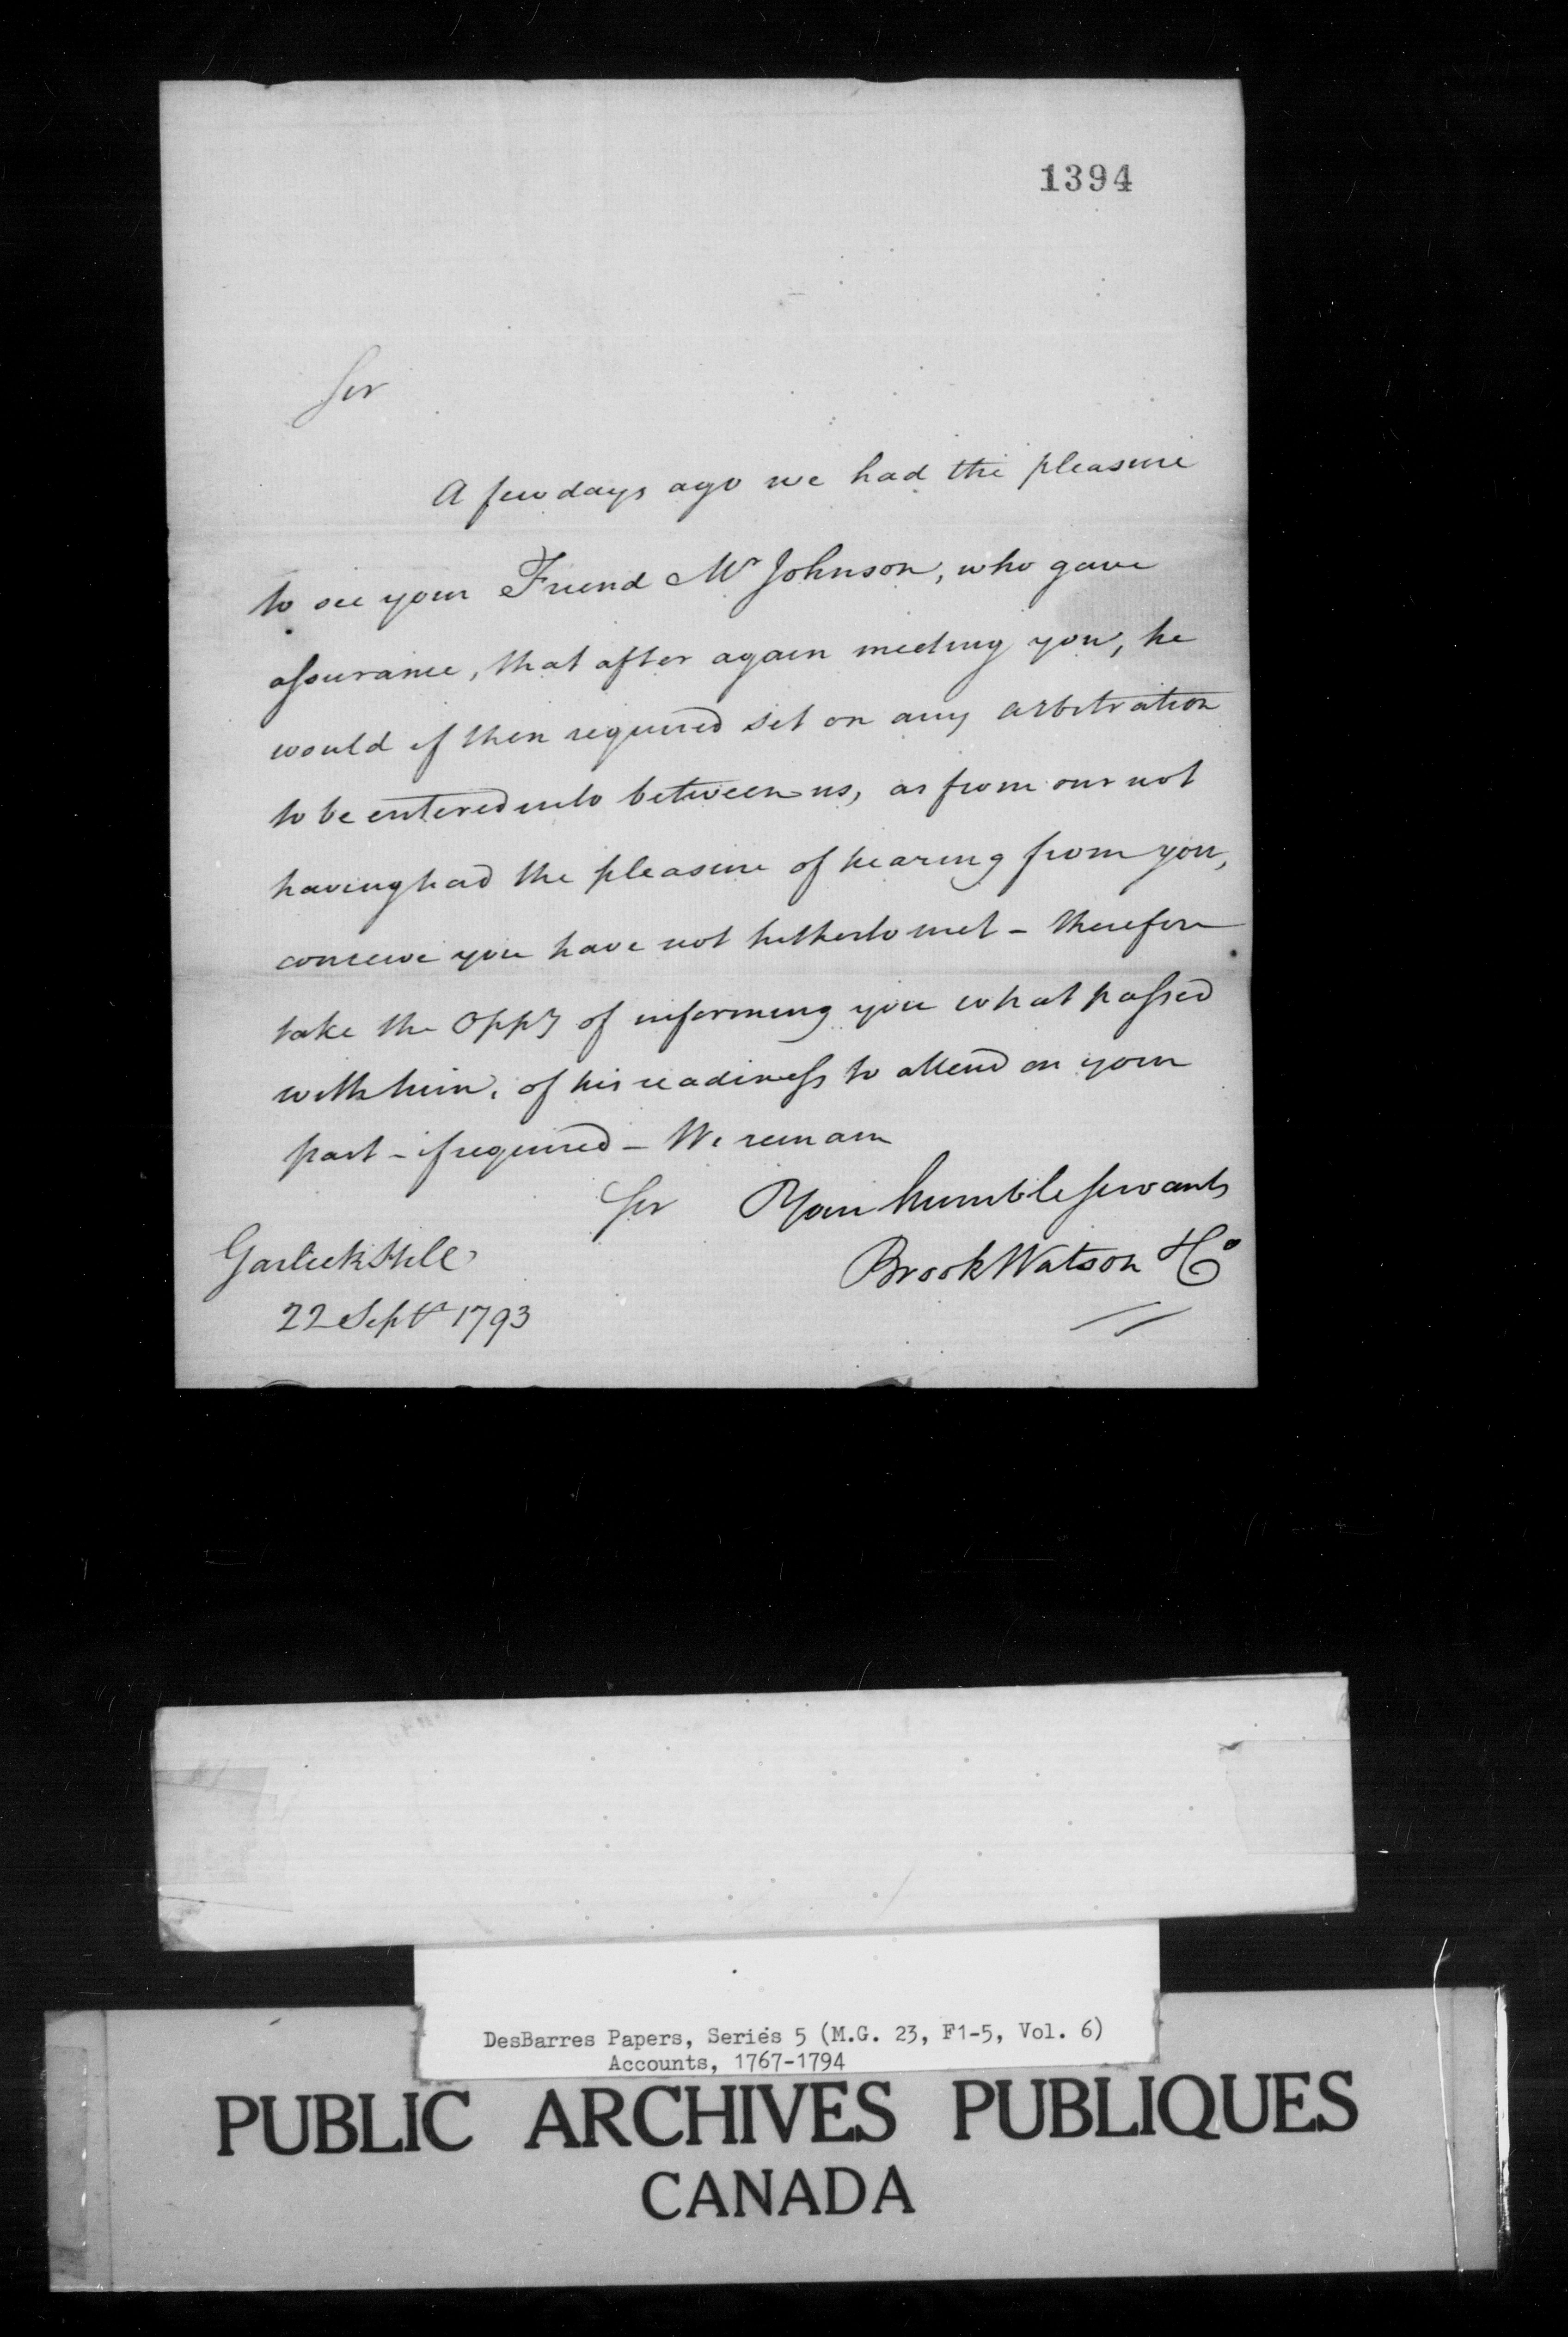 1394
Sir
A few days ago we had the pleasure
to see your Friend Mr Johnson, who gave
assurance, that after again meeting you, he
would if then required sit on any arbitration
to be entered into between us, as from our not
having had the pleasure of hearing from you,
conceive you have not hitherto met - therefore
take the Oppy of informing you what passed
with him, of his readiness to attend on your
part - if required - We remain
Sir Your humble servants
Brook Watson & Co
Garlick Hill
22 Septr 1793
DesBarres Papers, Series 5 (M.G. 23, F1-5, Vol. 6)
Accounts, 1767-1794
PUBLIC ARCHIVES PUBLIQUES
CANADA